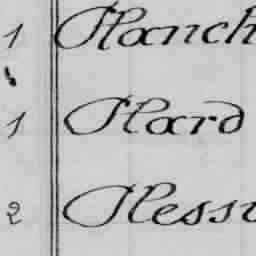 1 Planch
1 Plard
2 Plessi